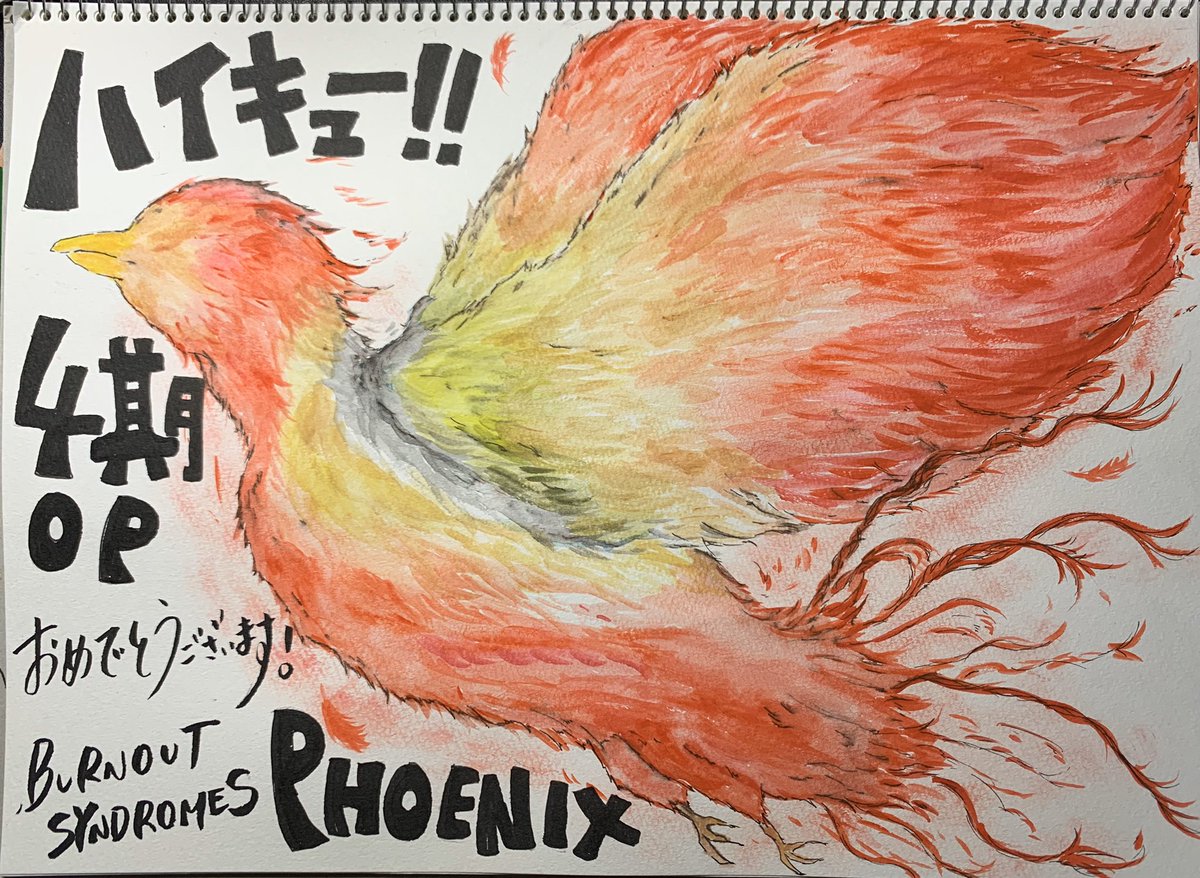 ハイキュー!!
4期
OP
おめでとうございます!
BURNOUT
SYNDROMES
PHOENIX